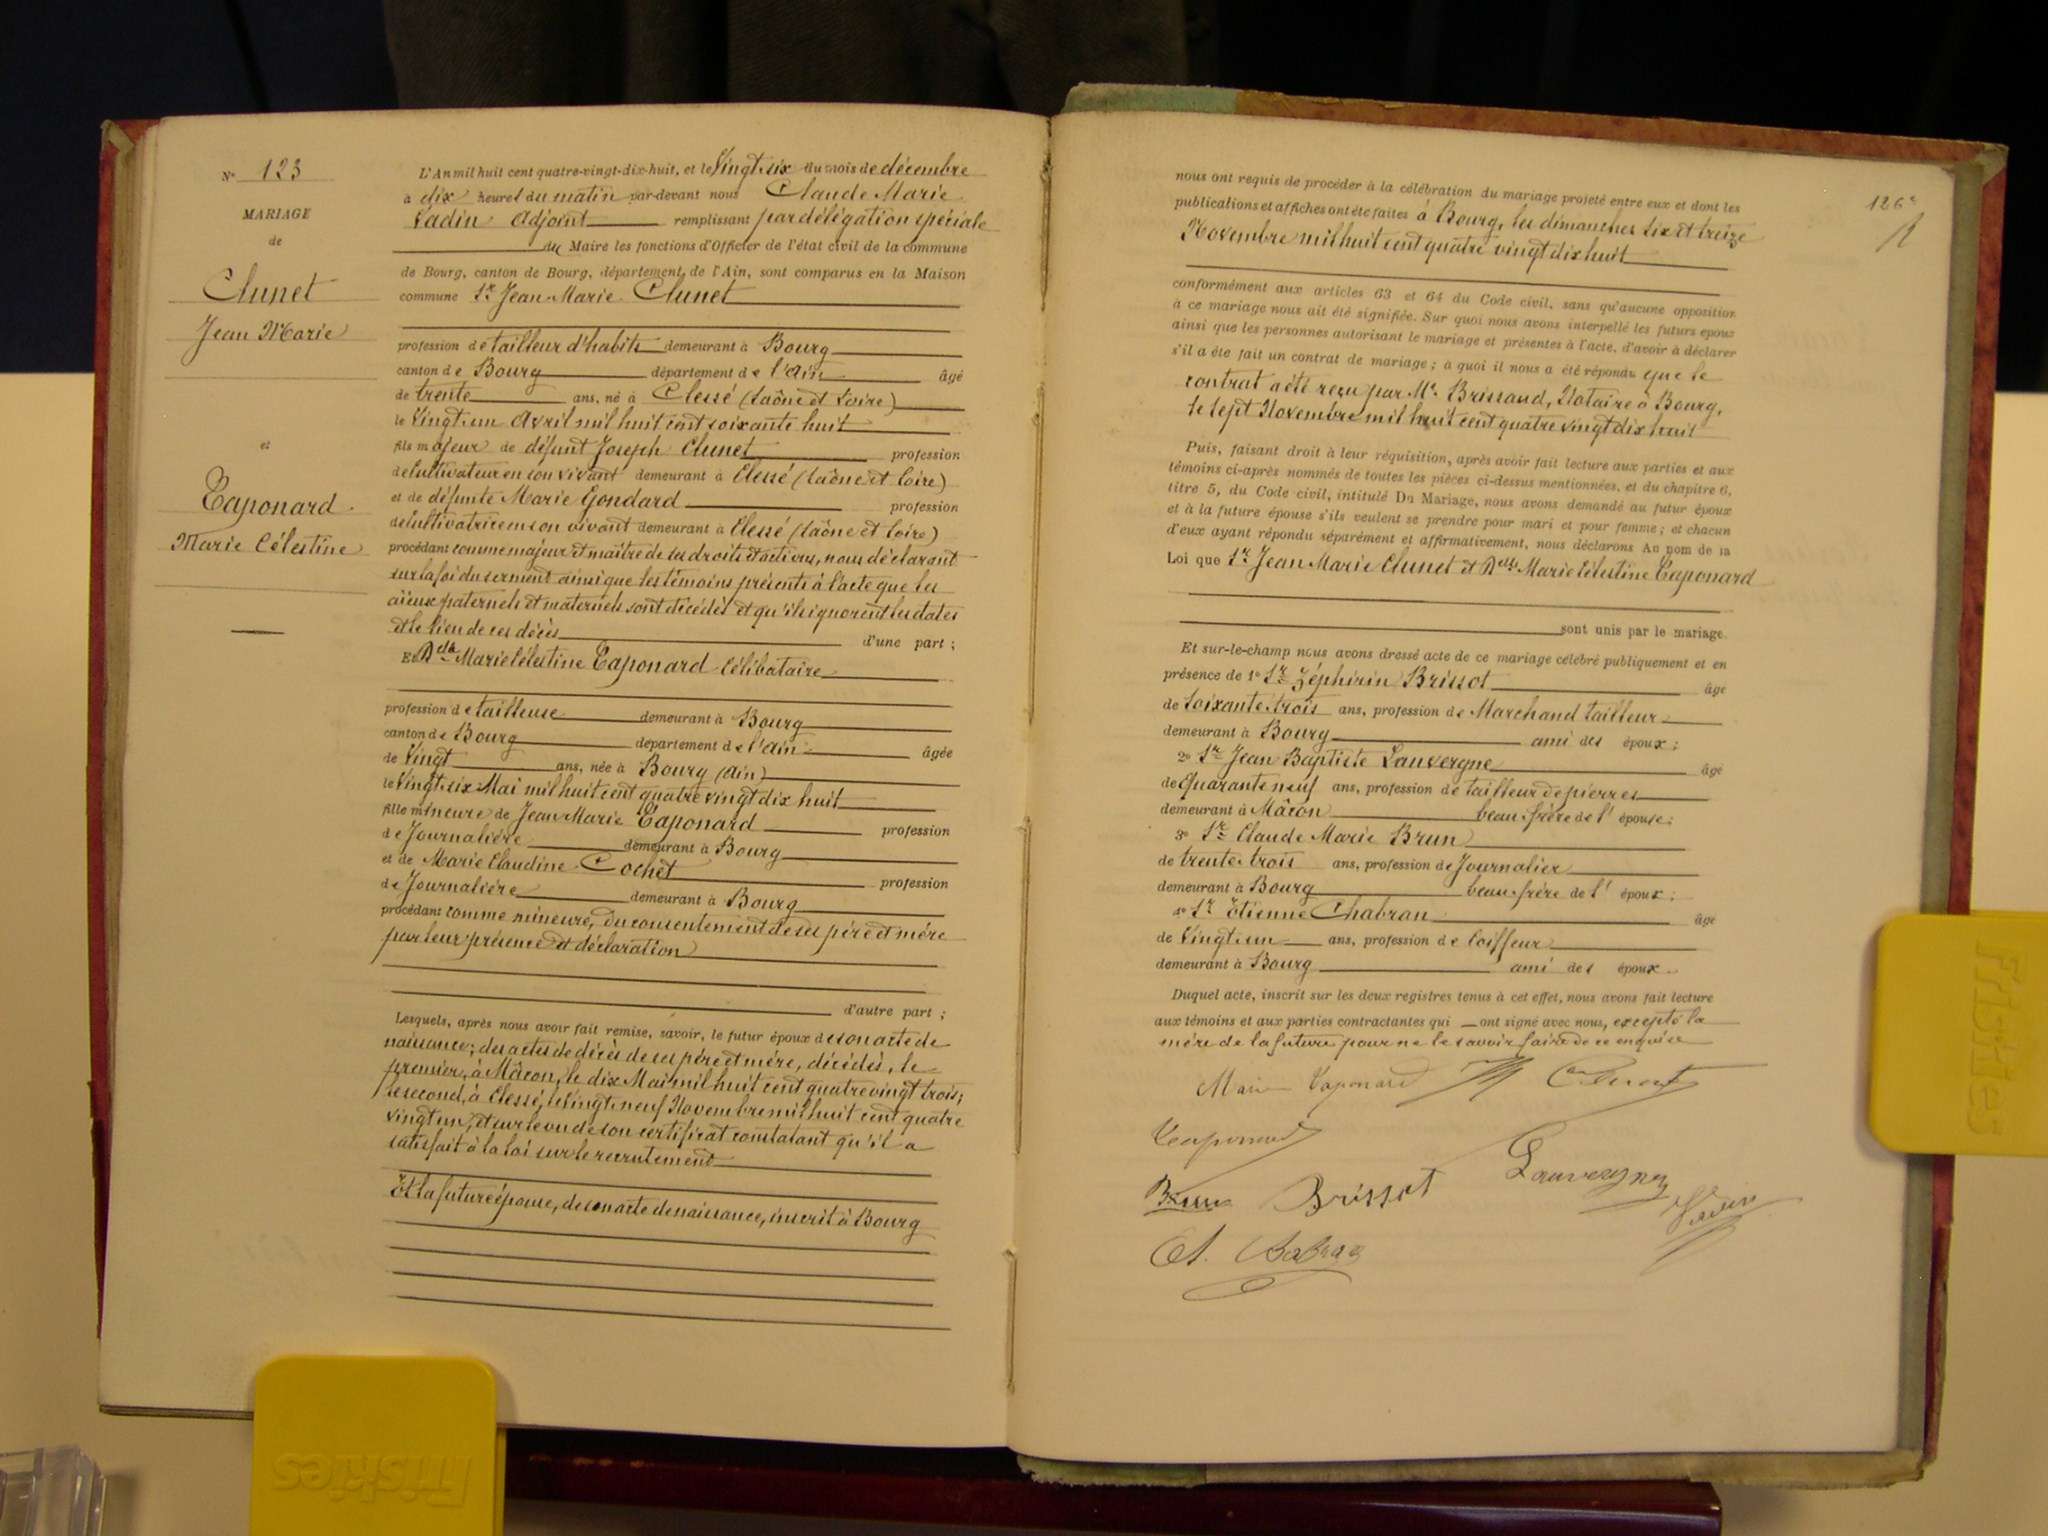 N° 123
MARIAGE
de
Clunet
Jean Marie
et
Taponard
Marie Célestine
L'An mil huit cent quatre-vingt-dix-huit, et le Vingt-six du mois de décembre
à dix heures du matin par-devant nous Claude Marie
Vadin Adjoint remplissant par délégation spéciale
du Maire les fonctions d'Officier de l'état civil de la commune
de Bourg, canton de Bourg, département de l'Ain, sont comparus en la Maison
commune Sr Jean Marie Clunet
profession de tailleur d'habits demeurant à Bourg
canton de Bourg département de l'Ain âgé
de trente ans, né à Clessé (Saône et Loire)
le Vingt un Avril mil huit cent soixante huit
fils majeur de défunt Joseph Clunet profession
de Cultivateur en son vivant demeurant à Clessé (Saône et Loire)
et de défunte Marie Gondard profession
de Cultivatrice en son vivant demeurant à Clessé (Saône et Loire)
procédant comme majeur et maître de ses droits et actions, nous déclarant
sur la foi du serment ainsi que les témoins présents à l'acte que les
aïeux paternels et maternels sont décédés et qu'ils ignorent les dates
et le lieu de ces décès d'une part ;
Et Delle Marie Célestine Taponard Célibataire
profession de tailleuse demeurant à Bourg
canton de Bourg département de l'Ain âgée
de Vingt ans, née à Bourg (Ain)
le Vingt-six Mai mil huit cent quatre vingt dix huit
fille mineure de Jean Marie Taponard profession
de Journalière demeurant à Bourg
et de Marie Claudine Cochet profession
de Journalière demeurant à Bourg
procédant comme mineure, du consentement de ses père et mère
par leur présence et déclaration
d'autre part ;
Lesquels, après nous avoir fait remise, savoir, le futur époux de son acte de
naissance ; des actes de décès de ses père et mère, décédés, le
premier, à Mâcon, le dix Mai mil huit cent quatre vingt trois ;
le second, à Clessé, le Vingt-neuf Novembre mil huit cent quatre
vingt un ; et sur le vu de son certificat constatant qu'il a
satisfait à la loi sur le recrutement
Et la future épouse, de son acte de naissance, inscrit à Bourg
126e
nous ont requis de procéder à la célébration du mariage projeté entre eux et dont les
publications et affiches ont été faites à Bourg, les dimanches six et treize
Novembre mil huit cent quatre vingt dix huit
conformément aux articles 63 et 64 du Code civil, sans qu'aucune opposition
à ce mariage nous ait été signifiée. Sur quoi nous avons interpellé les futurs époux
ainsi que les personnes autorisant le mariage et présentes à l'acte, d'avoir à déclarer
s'il a été fait un contrat de mariage ; à quoi il nous a été répondu que le
contrat a été reçu par Me Brissaud, Notaire à Bourg,
le sept Novembre mil huit cent quatre vingt dix huit
Puis, faisant droit à leur réquisition, après avoir fait lecture aux parties et aux
témoins ci-après nommés de toutes les pièces ci-dessus mentionnées, et du chapitre 6,
titre 5, du Code civil, intitulé Du Mariage, nous avons demandé au futur époux
et à la future épouse s'ils veulent se prendre pour mari et pour femme ; et chacun
d'eux ayant répondu séparément et affirmativement, nous déclarons Au nom de la
Loi que Sr Jean Marie Clunet et Delle Marie Célestine Taponard
sont unis par le mariage.
Et sur-le-champ nous avons dressé acte de ce mariage célébré publiquement et en
présence de 1° Sr Zéphirin Brissot âgé
de Soixante trois ans, profession de Marchand tailleur
demeurant à Bourg ami des époux ;
2° Sr Jean Baptiste Lauvergne âgé
de Quarante neuf ans, profession de tailleur de pierres
demeurant à Mâcon beau-frère de l'épouse ;
3° Sr Claude Marie Brun
de trente trois ans, profession de Journalier
demeurant à Bourg beau-frère de l'époux ;
4° Sr Etienne Chabran âgé
de Vingt-un ans, profession de Coiffeur
demeurant à Bourg ami des époux.
Duquel acte, inscrit sur les deux registres tenus à cet effet, nous avons fait lecture
aux témoins et aux parties contractantes qui ont signé avec nous, excepté la
mère de la future pour ne le savoir faire de ce enquise
Marie Taponard JM Clunet
Taponard
Lauvergne
Brun Brissot Vadin
Et. Chabran
Friskies
Friskies